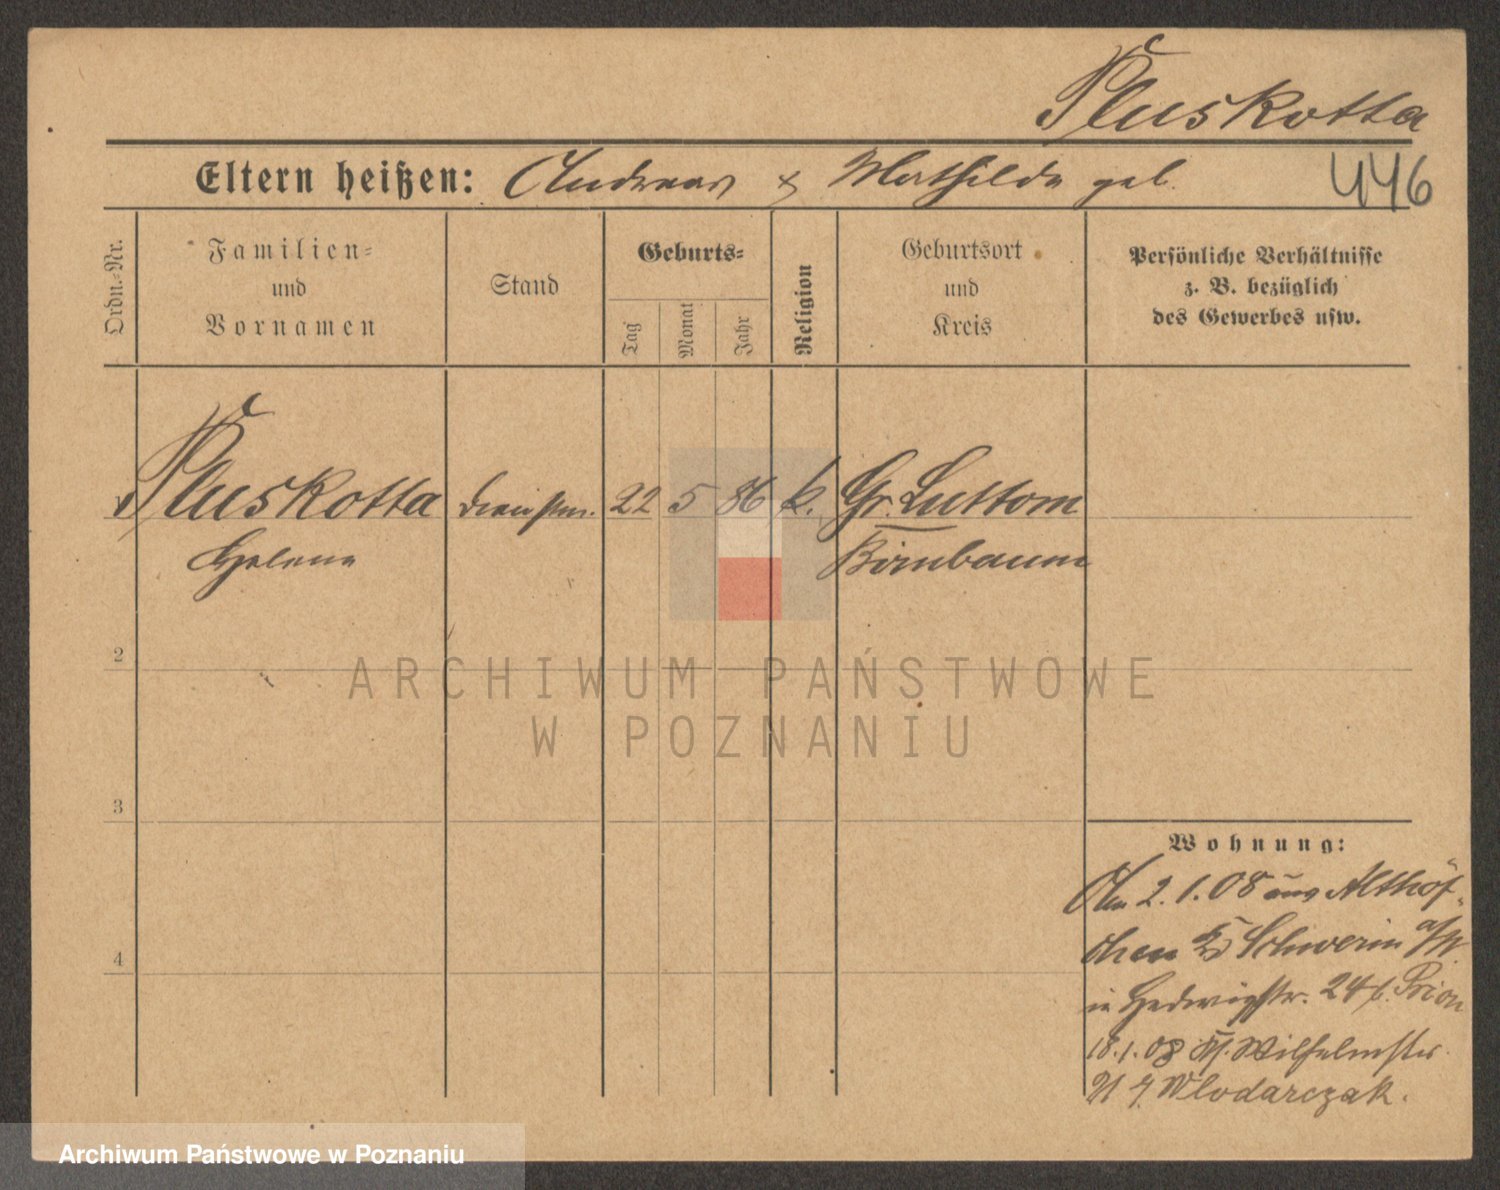 Pluskotta
Eltern heißen: Andreas & Mathilde geb.
446
Ordn.-Nr.
Familien-
und
Vornamen
Stand
Geburts-
Tag
Monat
Jahr
Religion
Geburtsort
und
Kreis
Persönliche Verhältnisse
z. B. bezüglich
des Gewerbes usw.
Pluskotta
Helene
22 5 86 k.
Gr. Luttom
Birnbaum
2
3
4
Wohnung:
Am 2.1.08 aus Althöf-
chen Schwerin a/W.
in Hedwigstr. 24 b. Prion
18.1.08 Wilhelmstr.
21 Wlodarczak.
ARCHIWUM PAŃSTWOWE
W POZNANIU
Archiwum Państwowe w Poznaniu